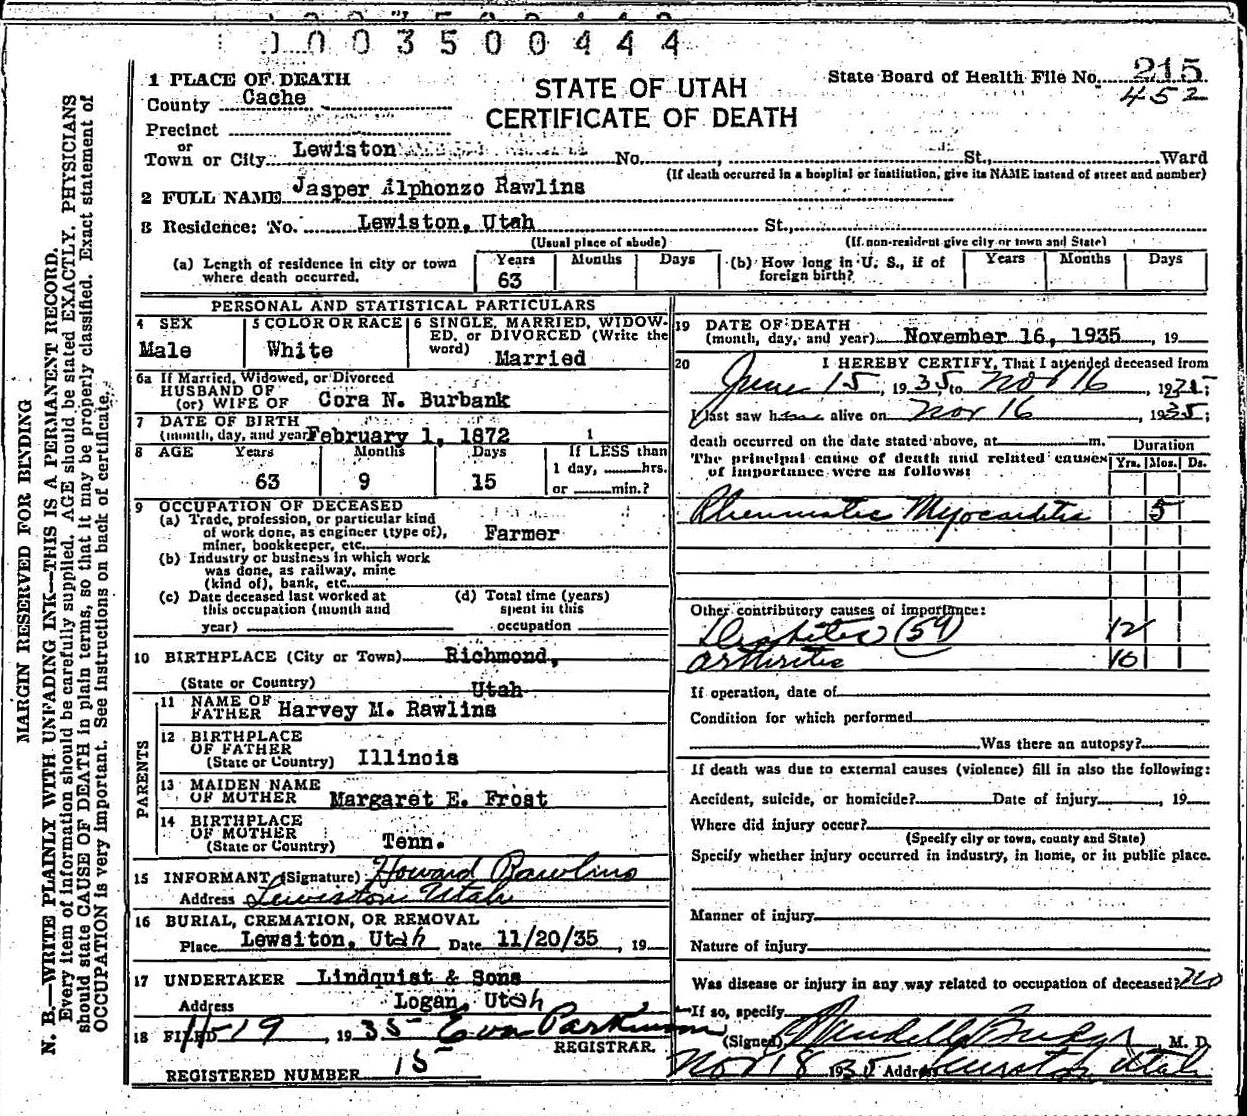 1003500444
1 PLACE OF DEATH
County Cache
STATE OF UTAH
CERTIFICATE OF DEATH
State Board of Health File No. 215
452
Precinct
or
Town or City Lewiston No. , St., Ward
(If death occurred in a hospital or institution, give its NAME instead of street and number)
2 FULL NAME Jasper Alphonzo Rawlins
3 Residence: No. Lewiston, Utah St.,
(Usual place of abode) (If non-resident give city or town and State)
(a) Length of residence in city or town where death occurred. Years 63 Months Days
(b) How long in U. S., if of foreign birth? Years Months Days
PERSONAL AND STATISTICAL PARTICULARS
4 SEX Male
5 COLOR OR RACE White
6 SINGLE, MARRIED, WIDOWED, or DIVORCED (Write the word) Married
6a If Married, Widowed, or Divorced
HUSBAND OF
(or) WIFE OF Cora N. Burbank
7 DATE OF BIRTH
(month, day, and year) February 1, 1872 1
8 AGE Years Months Days If LESS than
63 9 15 1 day, hrs.
or min.?
9 OCCUPATION OF DECEASED
(a) Trade, profession, or particular kind
of work done, as engineer (type of),
miner, bookkeeper, etc. Farmer
(b) Industry or business in which work
was done, as railway, mine
(kind of), bank, etc.
(c) Date deceased last worked at
this occupation (month and
year)
(d) Total time (years)
spent in this
occupation
10 BIRTHPLACE (City or Town) Richmond,
(State or Country) Utah
PARENTS
11 NAME OF
FATHER Harvey M. Rawlins
12 BIRTHPLACE
OF FATHER
(State or Country) Illinois
13 MAIDEN NAME
OF MOTHER Margaret E. Frost
14 BIRTHPLACE
OF MOTHER
(State or Country) Tenn.
15 INFORMANT (Signature) Howard Rawlins
Address Lewiston Utah
16 BURIAL, CREMATION, OR REMOVAL
Place Lewsiton, Utah Date 11/20/35 , 19
17 UNDERTAKER Lindquist & Sons
Address Logan, Utah
18 FILED 11-19 , 1935 Eva Parkinson
REGISTRAR.
REGISTERED NUMBER 15
19 DATE OF DEATH
(month, day, and year) November 16, 1935 , 19
20 I HEREBY CERTIFY, That I attended deceased from
June 15, 1935, to Nov 16, 1935;
I last saw him alive on Nov 16, 1935;
death occurred on the date stated above, at m.
The principal cause of death and related causes
of importance were as follows:
Duration
Yrs. Mos. Ds.
Rheumatic Myocarditis 5
Other contributory causes of importance:
Diabetes (59) 12
arthritis 10
If operation, date of
Condition for which performed
Was there an autopsy?
If death was due to external causes (violence) fill in also the following:
Accident, suicide, or homicide? Date of injury , 19
Where did injury occur?
(Specify city or town, county and State)
Specify whether injury occurred in industry, in home, or in public place.
Manner of injury
Nature of injury
Was disease or injury in any way related to occupation of deceased? no
If so, specify
(Signed) , M. D.
Nov 18 1935 Address Lewiston, Utah
MARGIN RESERVED FOR BINDING
N. B.—WRITE PLAINLY WITH UNFADING INK—THIS IS A PERMANENT RECORD.
Every item of information should be carefully supplied. AGE should be stated EXACTLY. PHYSICIANS
should state CAUSE OF DEATH in plain terms, so that it may be properly classified. Exact statement of
OCCUPATION is very important. See instructions on back of certificate.